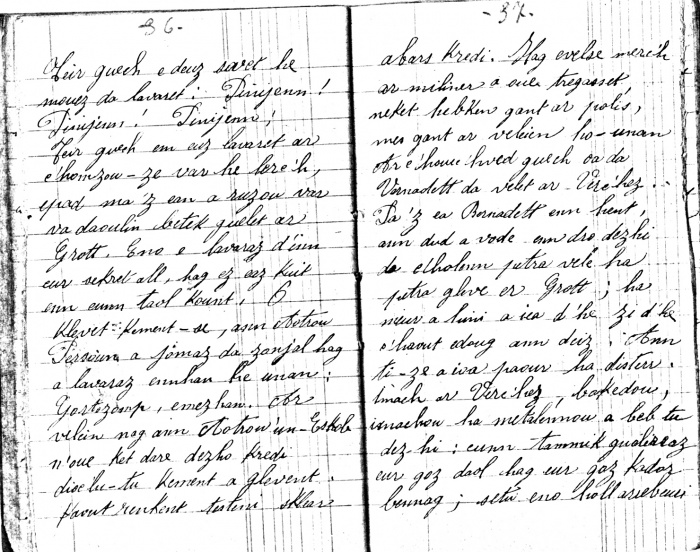 - 36 -
Teir guech e deuz savet he
mouez da lavaret : Pinijenn !
Pinijenn ! Pinijenn !
Teir guech em euz lavaret ar
c'homzou-ze var he lerc'h,
epad ma'z ean a ruzou var
va daoulin betek guelet ar
Grott. Eno e lavaraz d'in
eur sekret all, hag ez eaz kuit
enn eunn taol kount. 6
Klevet kement-se, ann Aotrou
Persoun a jomaz da zonjal hag
a lavaraz enn-han he unan :
Gortozomp, emezhan. Ar
veleien nag ann Aotrou 'n Eskob
n'oue ket dare dezho kredi
dioc'h-tu kement a glevent.
Favout renkent testeni sklear
- 37 -
abars kredi. Hag evelse merc'h
ar miliner a oue tregasset,
neket hebken gant ar polis,
mes gant ar veleien ho-unan
Ar c'houec'hved guech oa da
Vernadett da velet ar Verc'hez.
Pa'z ea Bernadett enn hent,
ann dud a vode enn dro dezhi
da c'houlenn petra vele ha
petra gleve er Grott ; ha
meur a hini a iea d'he zi d'he
c'haout edoug ann deiz. Ann
ti-ze a ioa paour ha disterr.
Imach ar Verc'hez, bokedou,
imachou ha metalennou a beb tu
dezhi : eunn tammik gueleeaz
eur goz daol hag eur goz kador
bennag ; setu eno holl arrebeuri